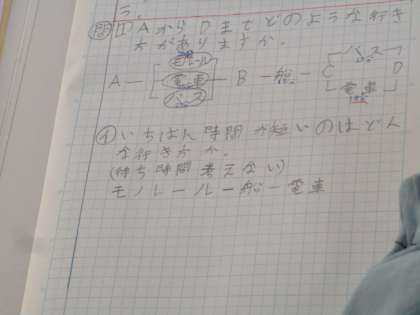 う。
問 1 AからDまでどのような行き
方がありますか。
モノレール バス
A 電車 B 船 C D
バス 電車
イ いちばん時間が短いのはどん
な行き方か。
(待ち時間考えない)
モノレールー船ー電車